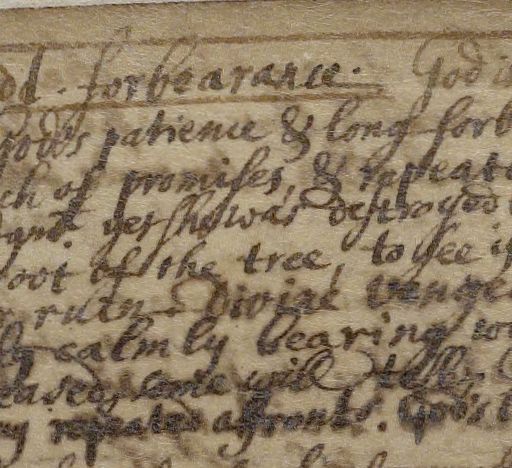 forbearance. God
God's patience & long forb
ch of promises, & repeat
yet she was destroyed
oot of the tree, to see i
ruin Divine venge
calmly bearing w
eased, some will tell
ny repeated affronts. God's